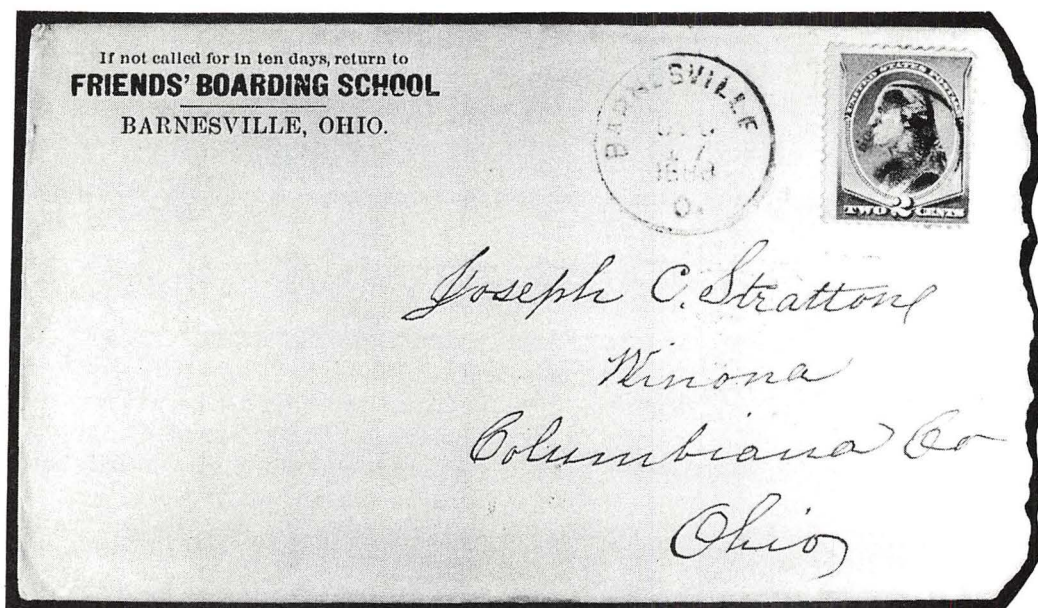 If not called for in ten days, return to
FRIENDS' BOARDING SCHOOL
BARNESVILLE, OHIO.
BARNESVILLE
O.
UNITED STATES POSTAGE
TWO 2 CENTS
Joseph C. Stratton
Winona
Columbiana Co
Ohio